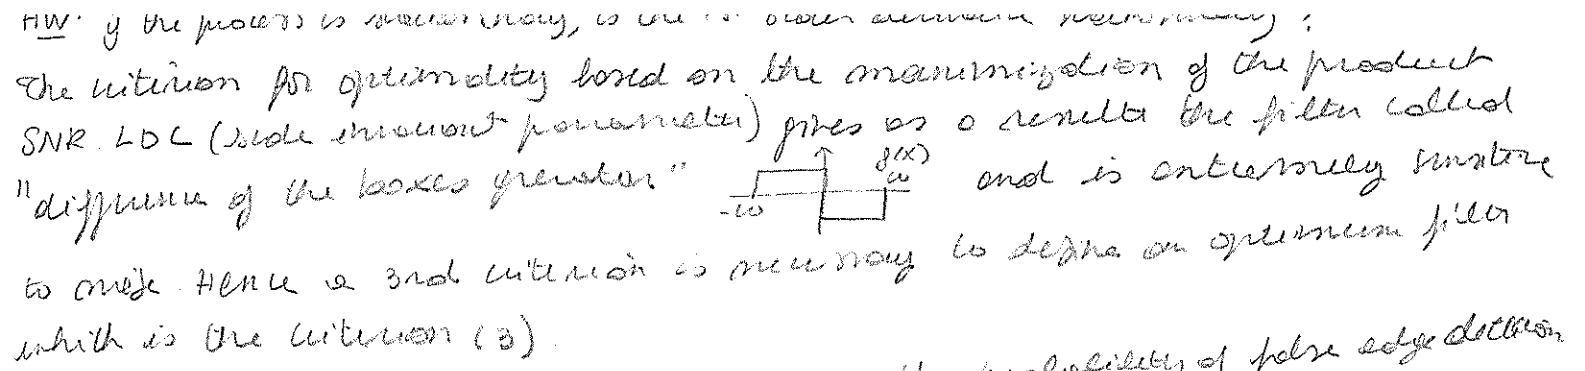 HW. if the process is stationary, is the 1st order derivative stationary?
The criterion for optimality based on the maximization of the product
SNR. LOC (scale invariant parameter) gives as a result the filter called
"difference of the boxes operator" -w f(x) w and is extremely sensitive
to noise. Hence a 3rd criterion is necessary to define an optimum filter
which is the criterion (3).
probability of false edge detection